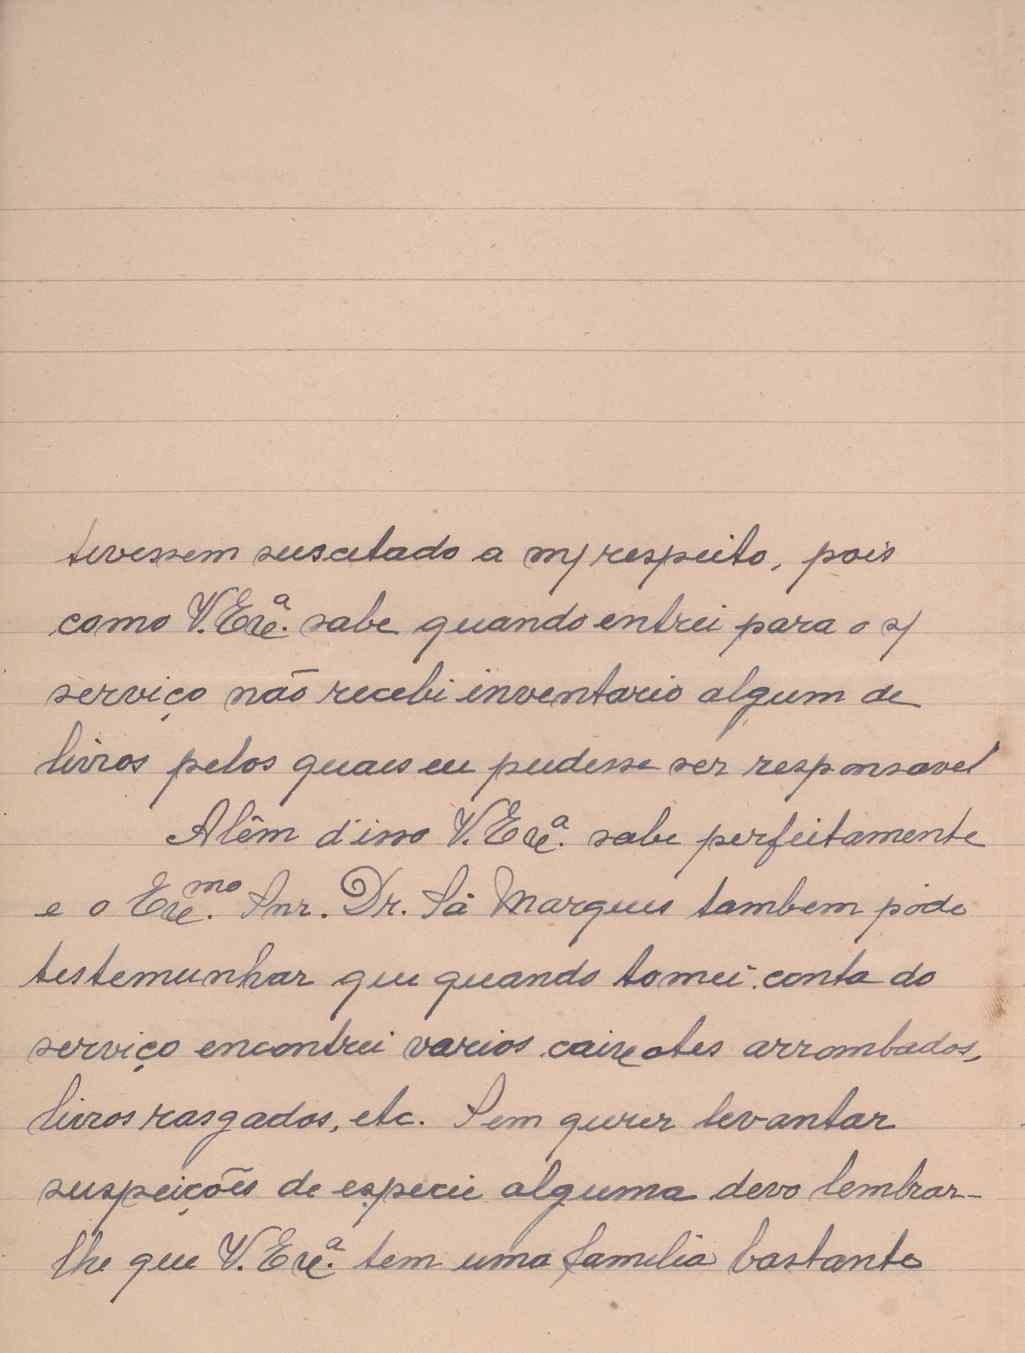 tivessem suscitado a m/ respeito, pois
como V. Exª. sabe quando entrei para o s/
serviço não recebi inventario algum de
livros pelos quaes eu pudesse ser responsavel
Alêm d'isso V. Exª. sabe perfeitamente
e o Exmo. Snr. Dr. Sá Marques tambem póde
testemunhar que quando tomei conta do
serviço encontrei varios caixotes arrombados,
livros rasgados, etc. Sem querer levantar
suspeições de especie alguma devo lembrar-
lhe que V. Exª. tem uma familia bastante